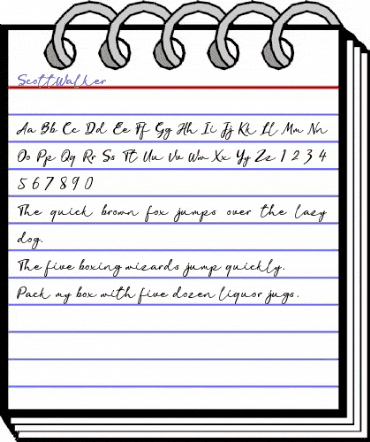 ScottWalker
Aa Bb Cc Dd Ee Ff Gg Hh Ii Jj Kk Ll Mm Nn
Oo Pp Qq Rr Ss Tt Uu Vv Ww Xx Yy Zz 1 2 3 4
5 6 7 8 9 0
The quick brown fox jumps over the lazy
dog.
The five boxing wizards jump quickly.
Pack my box with five dozen liquor jugs.